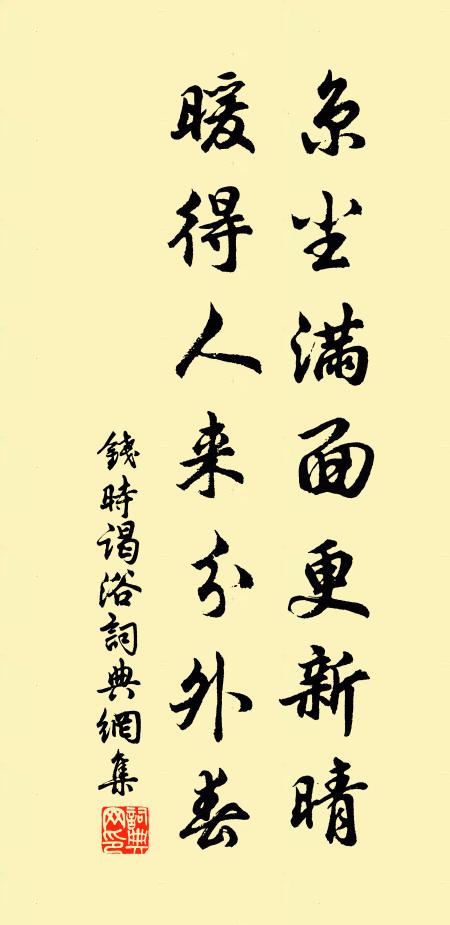 京尘满面更新晴
暖得人来分外春
錢時谒浴詞典網集
詞典网印